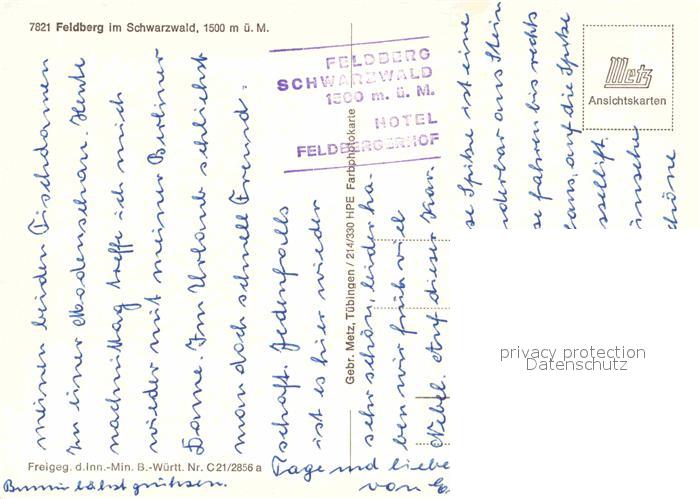 7821 Feldberg im Schwarzwald, 1500 m ü. M.
FELDBERG
SCHWARZWALD
1500 m. ü. M.
HOTEL
FELDBERGERHOF
Metz
Ansichtskarten
meinen beiden Tischdamen
zu einer Modenschau. Heute
nachmittag treffe ich mich
wieder mit meiner Berliner
Dame. Im Urlaub schließt
man doch schnell Freund-
schaft. Jedenfalls
ist es hier wieder
sehr schön, leider ha-
ben wir früh viel
Nebel. Auf dieser Kar-
se Spitze ist eine
nderbar aus Stein
se fahren bis rechts
aus, auf die Spitze
ssellift.
ünsche
chöne
Tage und liebe
von
Bummi läßt grüßen.
Gebr. Metz, Tübingen / 214/330 HPE Farbphotokarte
Freigeg. d. Inn.-Min. B.-Württ. Nr. C 21/2856 a
privacy protection
Datenschutz